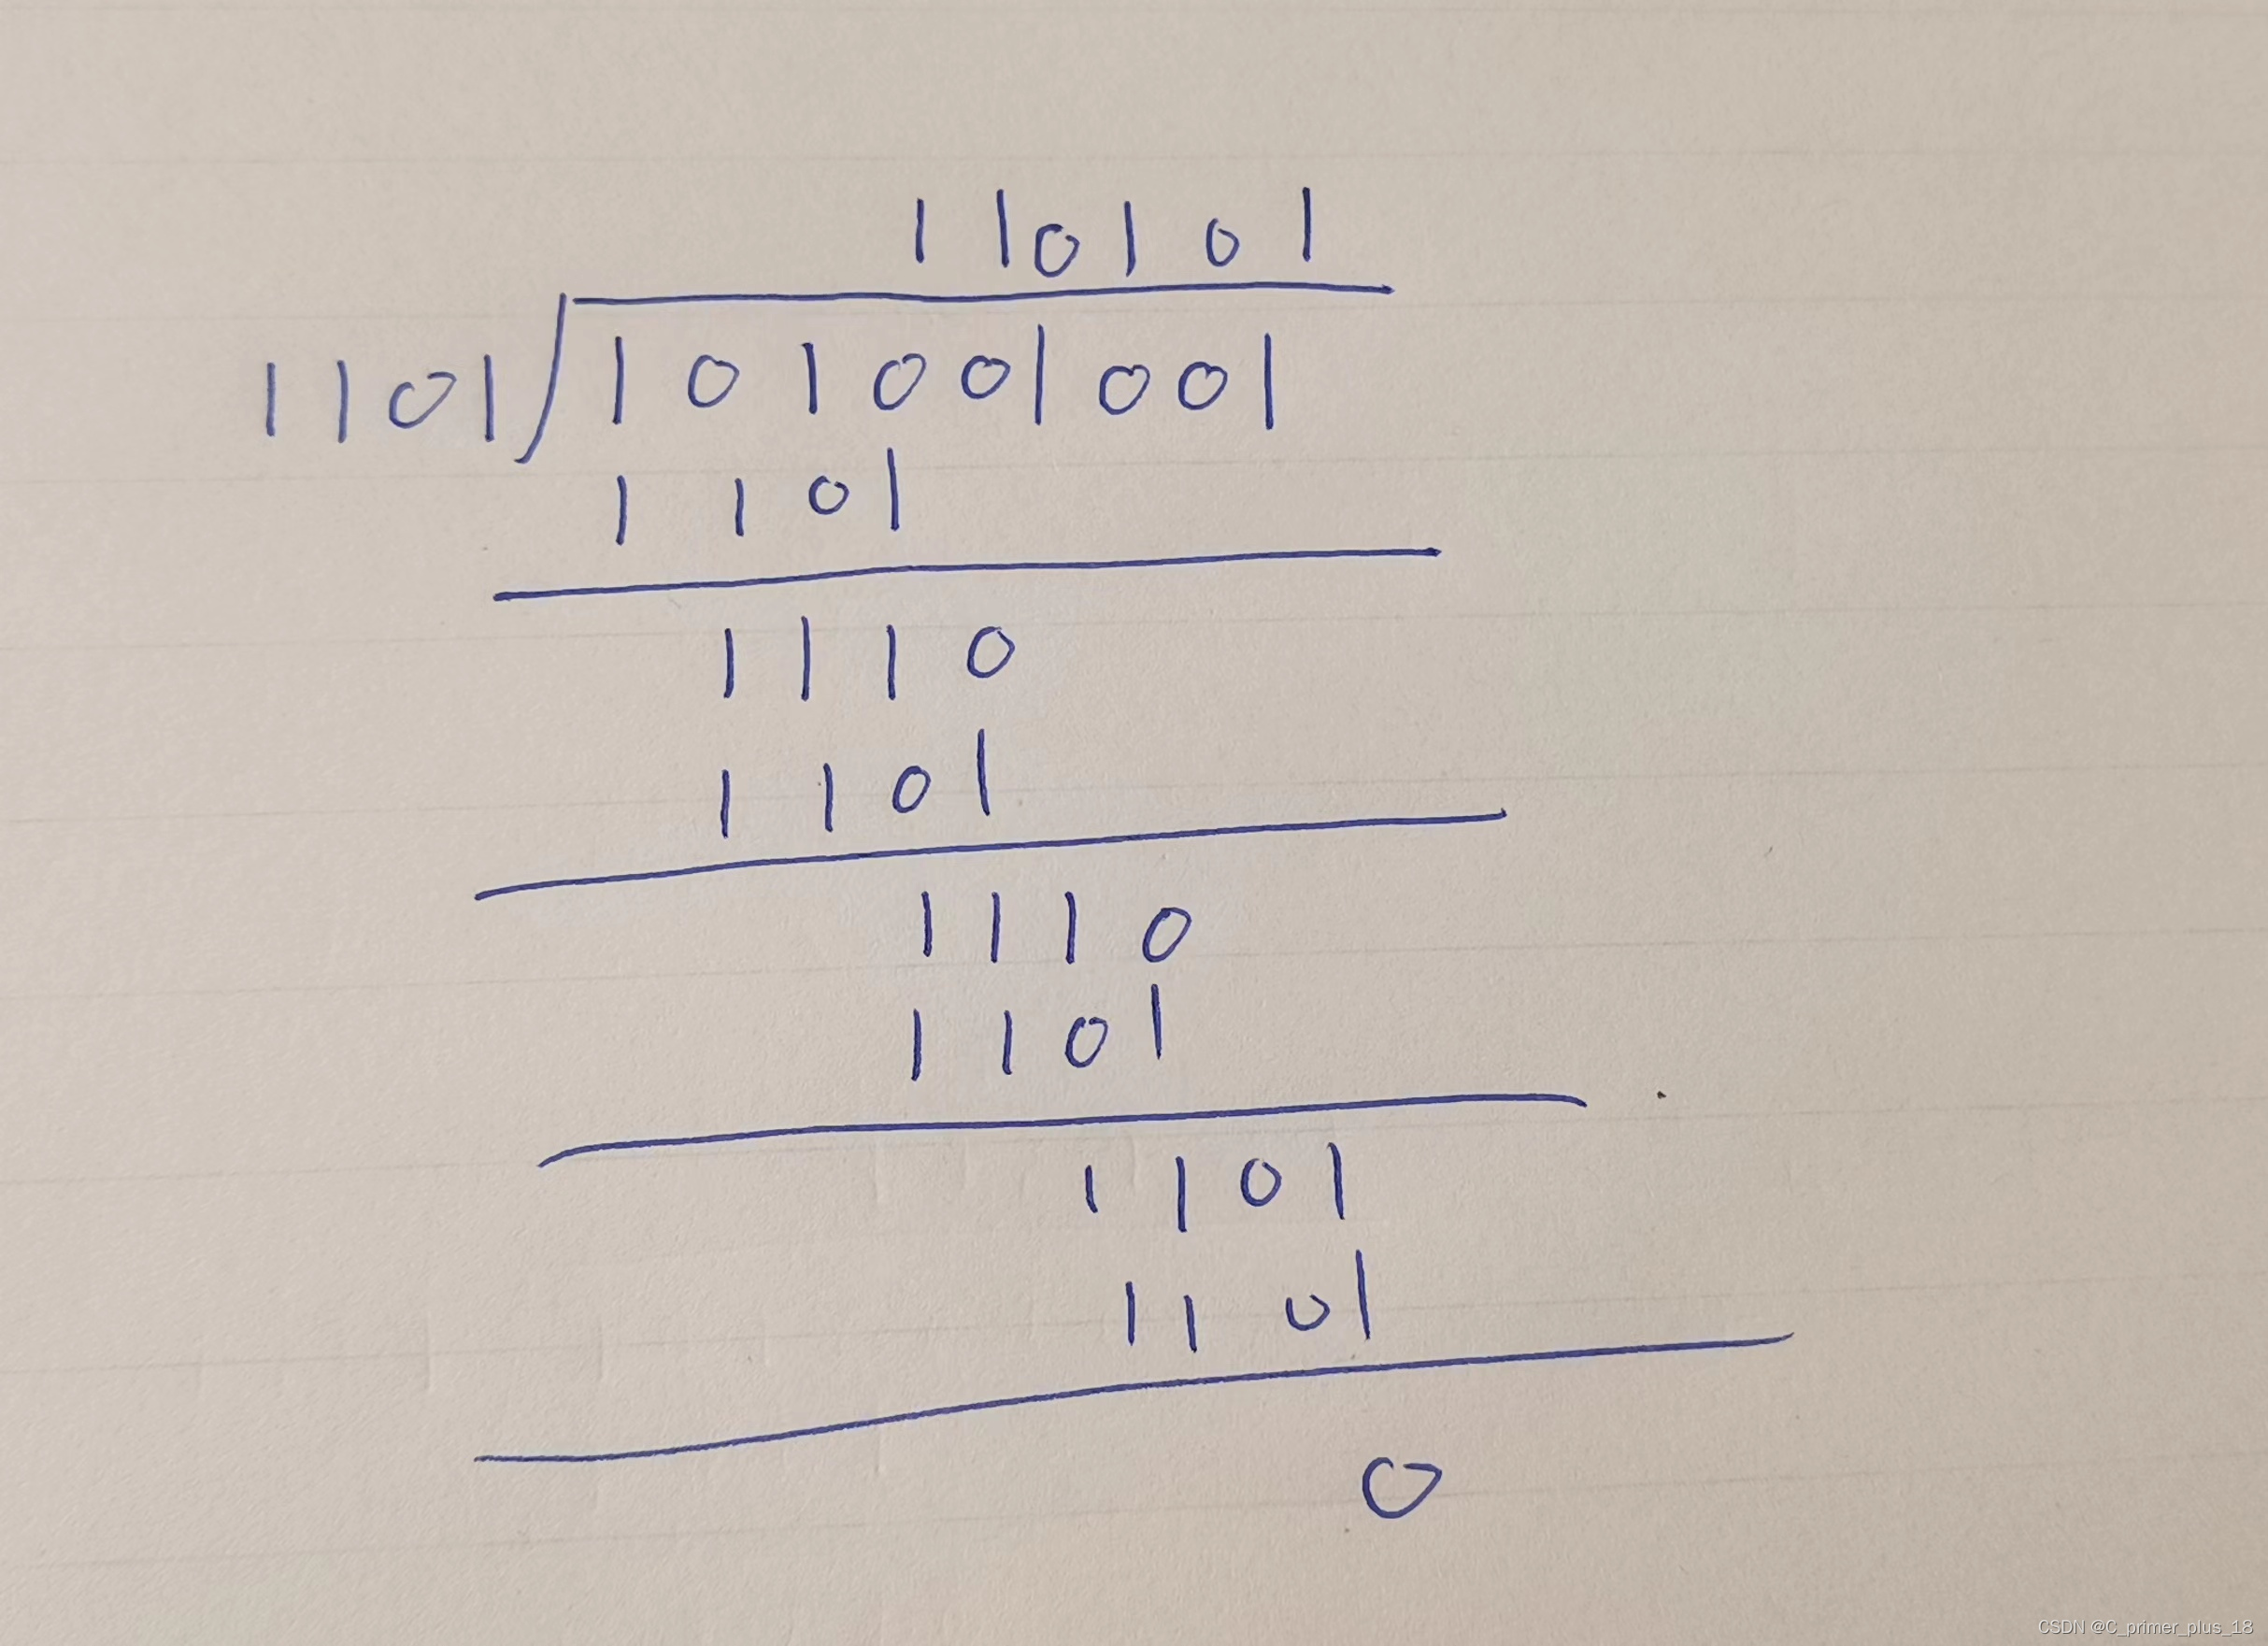 110101
1101 101001001
1101
1110
1101
1110
1101
1101
1101
0
CSDN @C_primer_plus_18